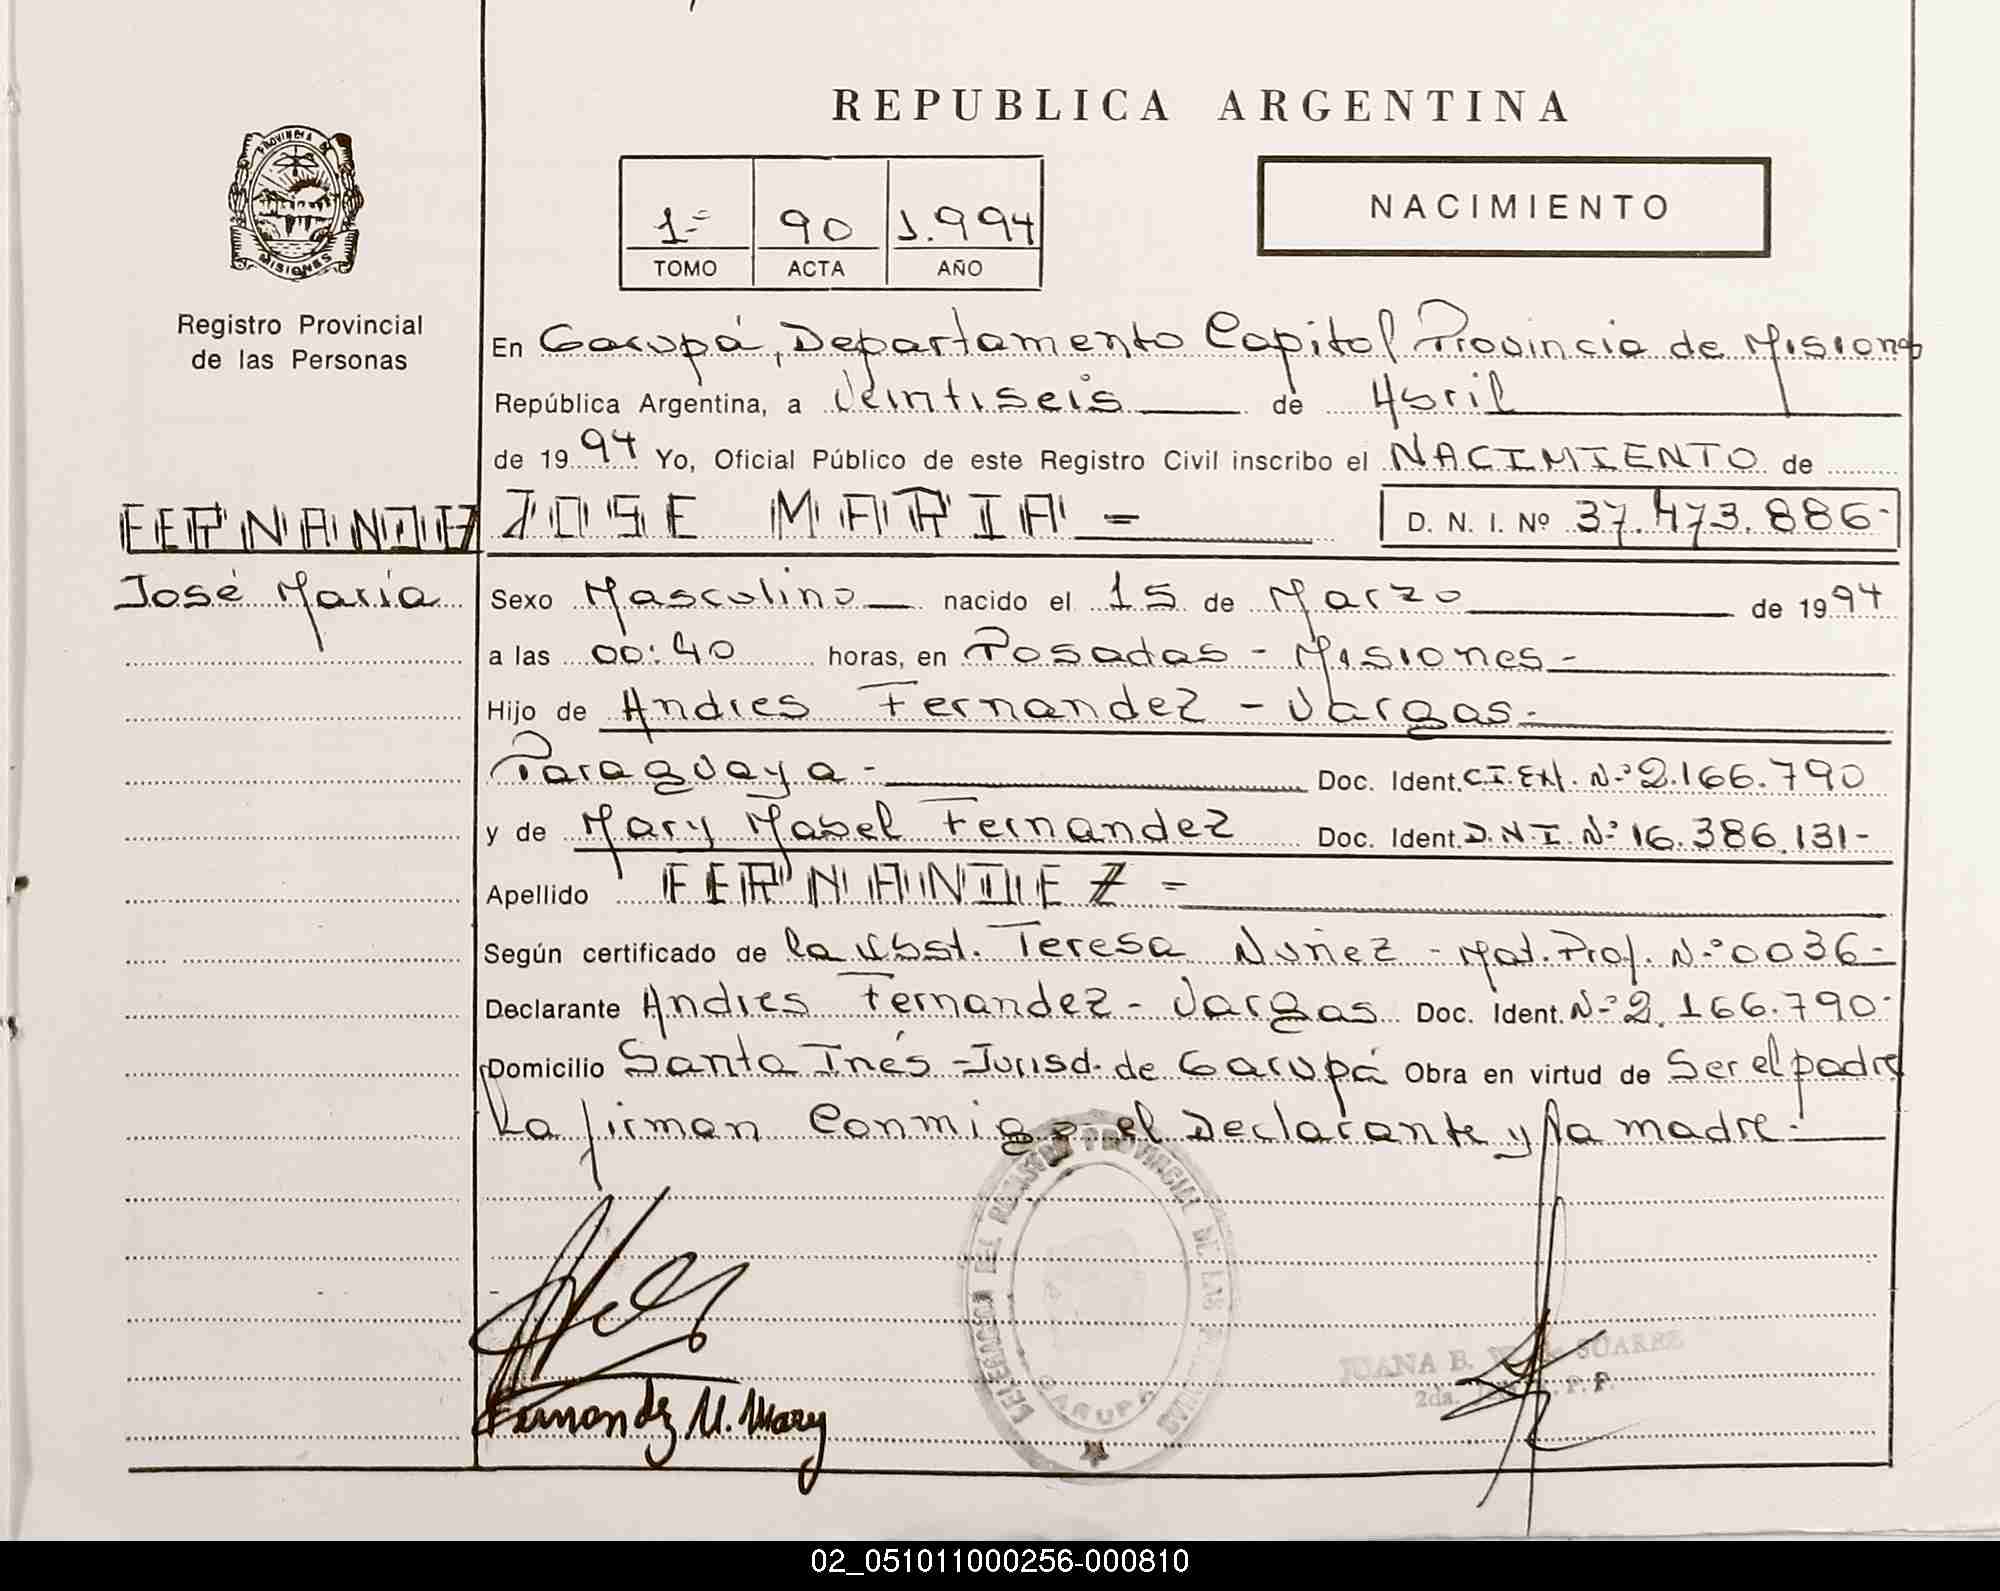 REPUBLICA ARGENTINA
PROVINCIA DE
MISIONES
Registro Provincial
de las Personas
1=
90
1.994
TOMO
ACTA
AÑO
NACIMIENTO
En Garupá, Departamento Capital Provincia de Misiones
República Argentina, a Veintiseis de Abril
de 1994 Yo, Oficial Público de este Registro Civil inscribo el NACIMIENTO de
FERNANDEZ
JOSE MARIA =
D. N. I. Nº 37.473.886-
José María
Sexo Masculino nacido el 15 de Marzo de 1994
a las 00:40 horas, en Posadas - Misiones -
Hijo de Andres Fernandez - Vargas -
Paraguaya - Doc. Ident. C.I.EM. Nº 2.166.790
y de Mary Mabel Fernandez Doc. Ident. D.N.I. Nº 16.386.131-
Apellido FERNANDEZ =
Según certificado de la Obst. Teresa Nuñez - Mat. Prof. Nº 0036-
Declarante Andres Fernandez - Vargas Doc. Ident. Nº 2.166.790-
Domicilio Santa Inés - Jurisd. de Garupá Obra en virtud de Ser el padre
La firman Conmigo el Declarante y la madre.
DELEGACION DEL REGISTRO PROVINCIAL DE LAS PERSONAS
GARUPA
JUANA B. SUAREZ
2da.
Fernandez M. Mary
02_051011000256-000810